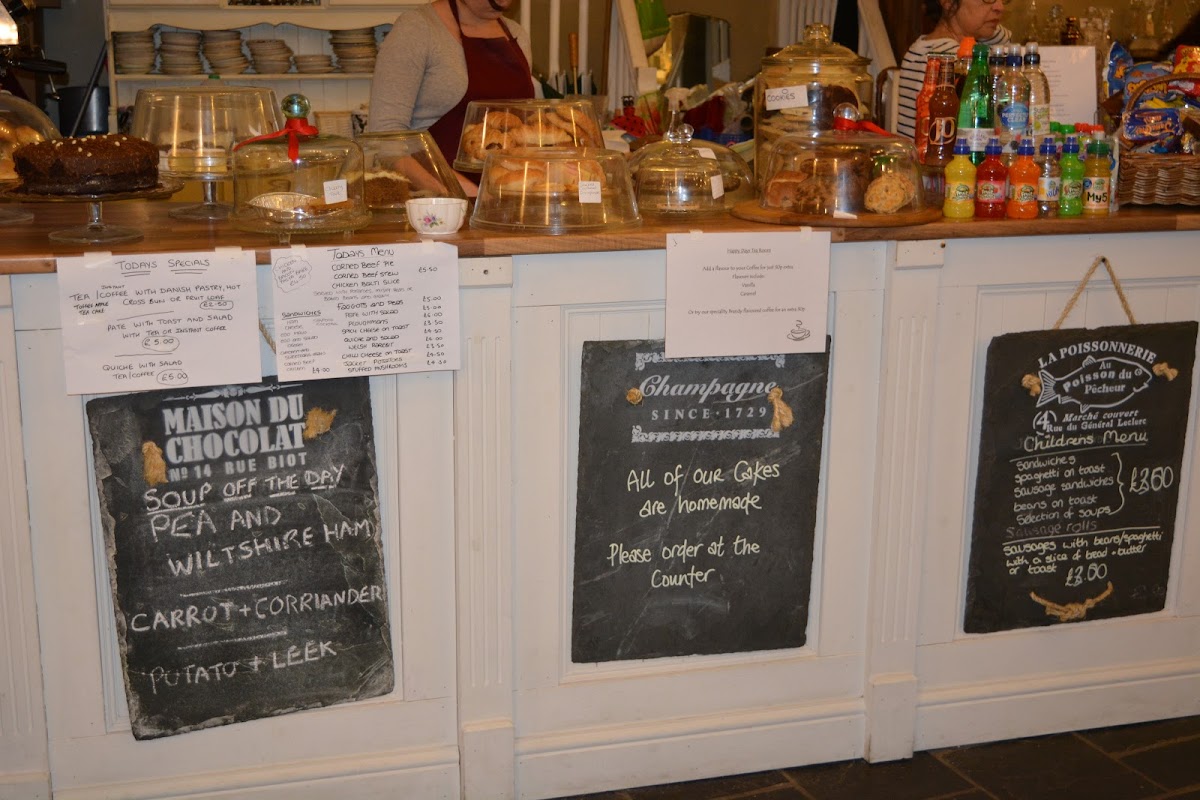 COOKIES
TODAYS SPECIALS
INSTANT
TEA/COFFEE WITH DANISH PASTRY, HOT
CROSS BUN OR FRUIT LOAF
TOFFEE APPLE
TEA CAKE
£2.50
PATE WITH TOAST AND SALAD
WITH TEA OR INSTANT COFFEE
£5.00
QUICHE WITH SALAD
TEA/COFFEE £5.00
TODAYS MENU
CORNED BEEF PIE
CORNED BEEF STEW £5.50
CHICKEN BALTI SLICE
FAGGOTS AND PEAS £5.00
SANDWICHES
PLOUGHMANS
CHEESE ON TOAST
QUICHE AND SALAD
WELSH RAREBIT
CHILLI CHEESE ON TOAST
JACKET POTATOES
STUFFED MUSHROOMS
CORNED BEEF
CHICKEN £4.00
MAISON DU
CHOCOLAT
Nº 14 RUE BIOT
SOUP OFF THE DAY
PEA AND
WILTSHIRE HAM
CARROT + CORRIANDER
POTATO + LEEK
Add a flavour to your Coffee for just 50p extra
Vanilla
Caramel
Champagne
SINCE · 1729
All of our Cakes
are homemade
Please order at the
Counter
LA POISSONNERIE
Au
Poisson du
Pêcheur
4 Marché couvert
Rue du Général Leclerc
Childrens Menu
Sandwiches
spaghetti on toast
Sausage sandwiches
beans on toast
Selection of soups
£3.50
Sausage rolls
Sausages with beans/spaghetti
with a slice of bread + butter
or toast £3.50